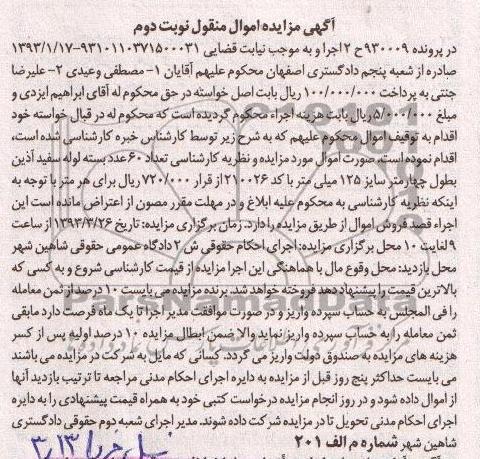 آگهی مزایده اموال منقول نوبت دوم
در پرونده ۹۳۰۰۰۹ح ۲ اجرا و به موجب نیابت قضایی ۹۳۱۰۱۱۰۳۷۱۵۰۰۰۳۱-۱۳۹۳/۱/۱۷
صادره از شعبه پنجم دادگستری اصفهان محکوم علیهم آقایان ۱- مصطفی وعیدی ۲- علیرضا
جنتی به پرداخت ۱۰۰/۰۰۰/۰۰۰ ریال بابت اصل خواسته در حق محکوم له آقای ابراهیم ایزدی و
مبلغ ۵/۰۰۰/۰۰۰ ریال بابت هزینه اجراء محکوم گردیده است که محکوم له در قبال خواسته خود
اقدام به توقیف اموال محکوم علیهم که به شرح زیر توسط کارشناس خبره کارشناسی شده است،
اقدام نموده است. صورت اموال مورد مزایده و نظریه کارشناسی تعداد ۶۰ عدد بسته لوله سفید آذین
بطول چهارمتر سایز ۱۲۵ میلی متر با کد ۲۱۰۰۲۶ از قرار ۷۲۰/۰۰۰ ریال برای هر متر با توجه به
اینکه نظریه کارشناسی به محکوم علیه ابلاغ و در مهلت مقرر مصون از اعتراض مانده است این
اجراء قصد فروش اموال از طریق مزایده را دارد. زمان برگزاری مزایده: تاریخ ۱۳۹۳/۳/۲۶ از ساعت
۹ لغایت ۱۰ محل برگزاری مزایده: اجرای احکام حقوقی ش ۲ دادگاه عمومی حقوقی شاهین شهر
محل بازدید: محل وقوع مال با هماهنگی این اجرا مزایده از قیمت کارشناسی شروع و به کسی که
بالاترین قیمت را پیشنهاد دهد فروخته خواهد شد. برنده مزایده می بایست ۱۰ درصد از ثمن معامله
را فی المجلس به حساب سپرده واریز و در صورت موافقت مدیر اجرا تا یک ماه فرصت دارد مابقی
ثمن معامله را به حساب سپرده واریز نماید والا ضمن ابطال مزایده ۱۰ درصد اولیه پس از کسر
هزینه های مزایده به صندوق دولت واریز می گردد. کسانی که مایل به شرکت در مزایده می باشند
می بایست حداکثر پنج روز قبل از مزایده به دایره اجرای احکام مدنی مراجعه تا ترتیب بازدید آنها
از اموال داده شود و در روز انجام مزایده درخواست کتبی خود به همراه قیمت پیشنهادی را به دایره
اجرای احکام مدنی تحویل تا در مزایده شرکت داده شوند. مدیر اجرای شعبه دوم حقوقی دادگستری
شاهین شهر شماره م الف ۲۰۱
ParsNamadData